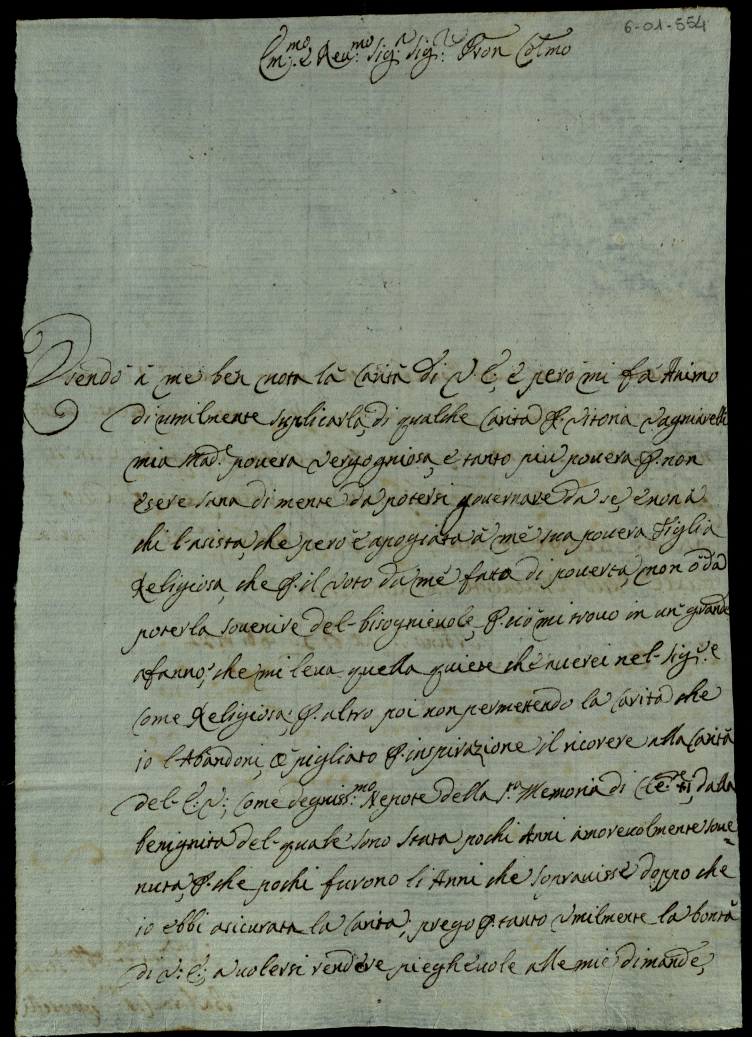 6-01-554
Em.mo e Reu.mo Sig.r Sig.r Pron Colmo
Esendo à me ben nota la Carità di V: E; e però mi fà Animo
di umilmente suplicarla, di qualche Carità P. Vitoria
mia Mad.e pouera vergogniosa, e tanto più pouera P. non
esere sana di mente da potersi gouernare da se, e non à
chi l'asista, che però è apogiata à me sua pouera Figlia
Religiosa, che P. il voto da me fato di pouertà, non ò da
poterla souenire del bisognieuole, P. ciò mi trouo in un grande
afanno, che mi leua quella quiete che auerei nel Sig.re
come Religiosa; P. altro poi non permetendo la Carità che
io l'Abandoni, ò pigliato P. inspirazione il ricorere alla Carità
del E: V:, come degniss.mo Nepote della S.ta Memoria di Cle.te XI, dalla
benignità del quale sono stata pochi Anni amoreuolmente soue=
nuta, P. che pochi furono li Anni che soprauisse doppo che
io ebbi asicurata la Carità; prego P. tanto Umilmente la bontà
di V: E; a uolersi rendere pieghèuole alle mie dimande,